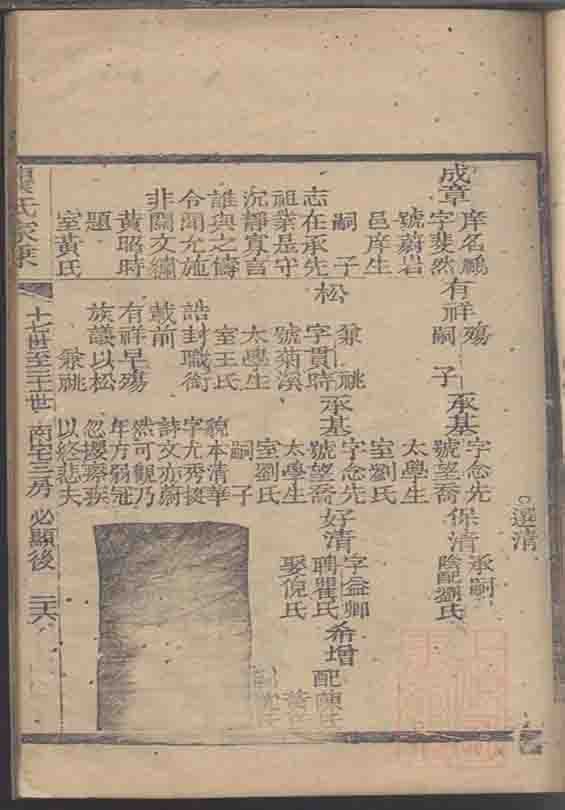 成章
庠名鵬
字斐然
號蔚岩
邑庠生
嗣子
志在承先
祖業是守
沉靜寡言
誰與之儔
令聞允施
非關文繡
黃昭時
題
室黃氏
有祥
殤
嗣子
松
兼祧
字貫時
號菊溪
太學生
室王氏
誥封職銜
載前
有祥早殤
族議以松
兼祧
承基
字念先
號望喬
太學生
室劉氏
承基
字念先
號望喬
太學生
室劉氏
嗣子
貌本清華
字尤秀挺
詩文亦蔚
然可觀乃
年方弱冠
忽攖瘵疾
以終悲夫
還清
保清
承嗣
陰配劉氏
好清
字益卿
聘瞿氏
娶倪氏
希增
配陳氏
氏家乘
十七世至二十世 南宅三房 必顯後 二六